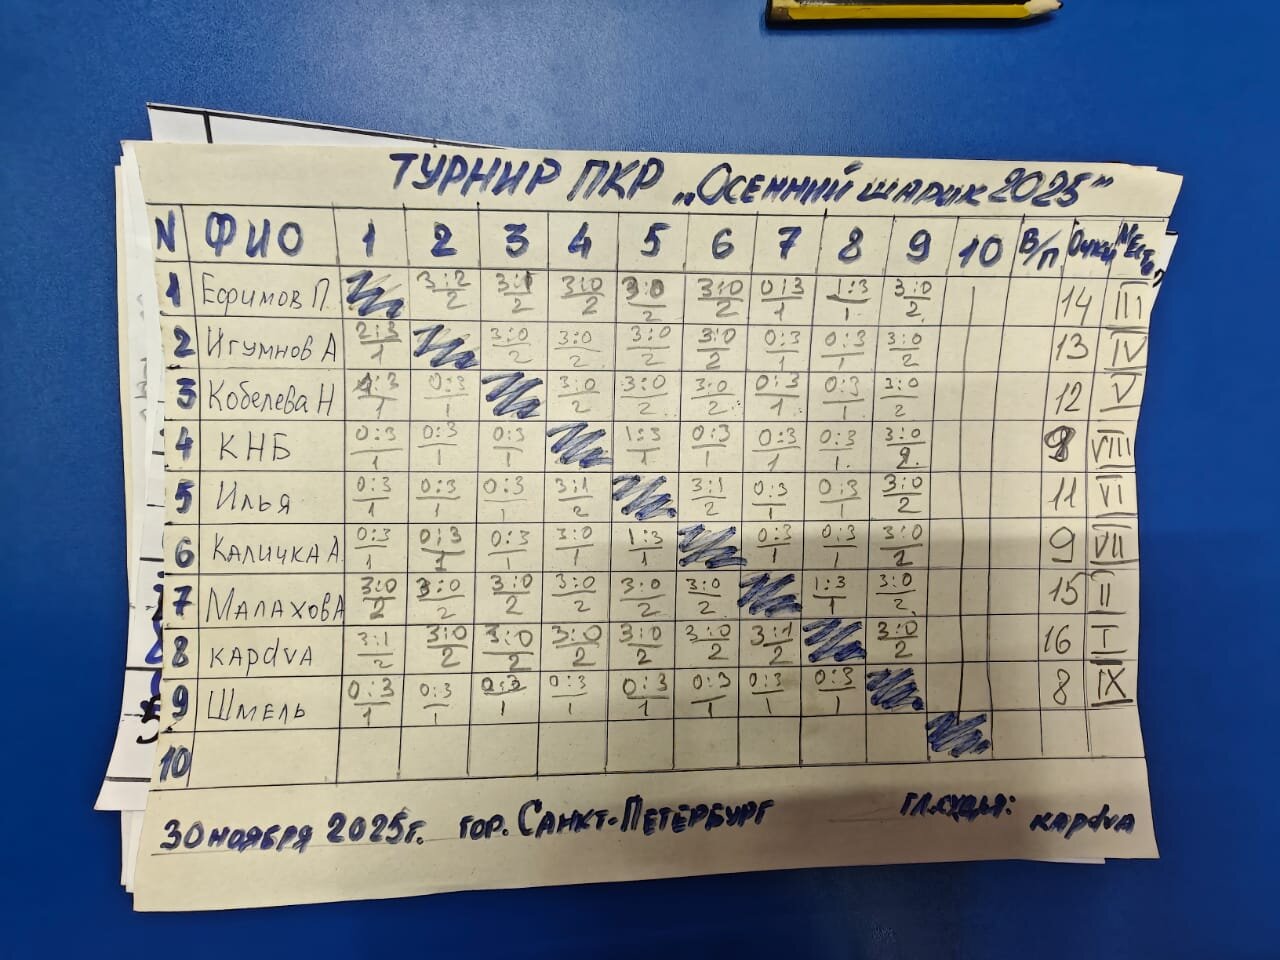 ТУРНИР ПКР „Осенний шарик 2025"
N ФИО 1 2 3 4 5 6 7 8 9 10 В/П Очки Место
1 Ефимов П. 3:2/2 3:1/2 3:0/2 3:0/2 3:0/2 0:3/1 1:3/1 3:0/2 14 III
2 Игумнов А 2:3/1 3:0/2 3:0/2 3:0/2 3:0/2 0:3/1 0:3/1 3:0/2 13 IV
3 Кобелева Н 1:3/1 0:3/1 3:0/2 3:0/2 3:0/2 0:3/1 0:3/1 3:0/2 12 V
4 КНБ 0:3/1 0:3/1 0:3/1 1:3/1 0:3/1 0:3/1 0:3/1 3:0/2 VIII
5 Илья 0:3/1 0:3/1 0:3/1 3:1/2 3:1/2 0:3/1 0:3/1 3:0/2 11 VI
6 Каличка А. 0:3/1 0:3/1 0:3/1 3:0/1 1:3/1 0:3/1 0:3/1 3:0/2 9 VII
7 Малахов А 3:0/2 3:0/2 3:0/2 3:0/2 3:0/2 3:0/2 1:3/1 3:0/2 15 II
8 капdvа 3:1/2 3:0/2 3:0/2 3:0/2 3:0/2 3:0/2 3:1/2 3:0/2 16 I
9 Шмель 0:3/1 0:3/1 0:3/1 0:3/1 0:3/1 0:3/1 0:3/1 0:3/1 8 IX
10
30 ноября 2025г. гор. Санкт-Петербург гл.судья: капdvа